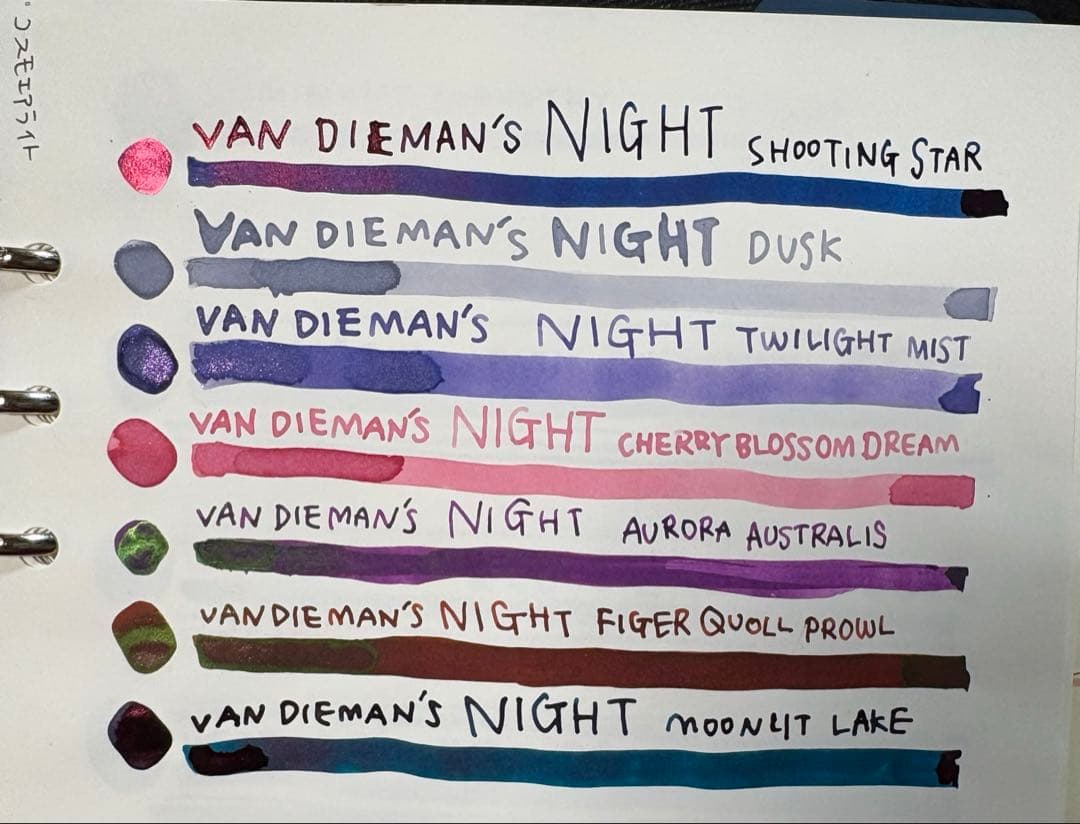 コスモエアライト
VAN DIEMAN'S NIGHT SHOOTING STAR
VAN DIEMAN'S NIGHT DUSK
VAN DIEMAN'S NIGHT TWILIGHT MIST
VAN DIEMAN'S NIGHT CHERRY BLOSSOM DREAM
VAN DIEMAN'S NIGHT AURORA AUSTRALIS
VAN DIEMAN'S NIGHT FIGER QUOLL PROWL
VAN DIEMAN'S NIGHT MOONLIT LAKE